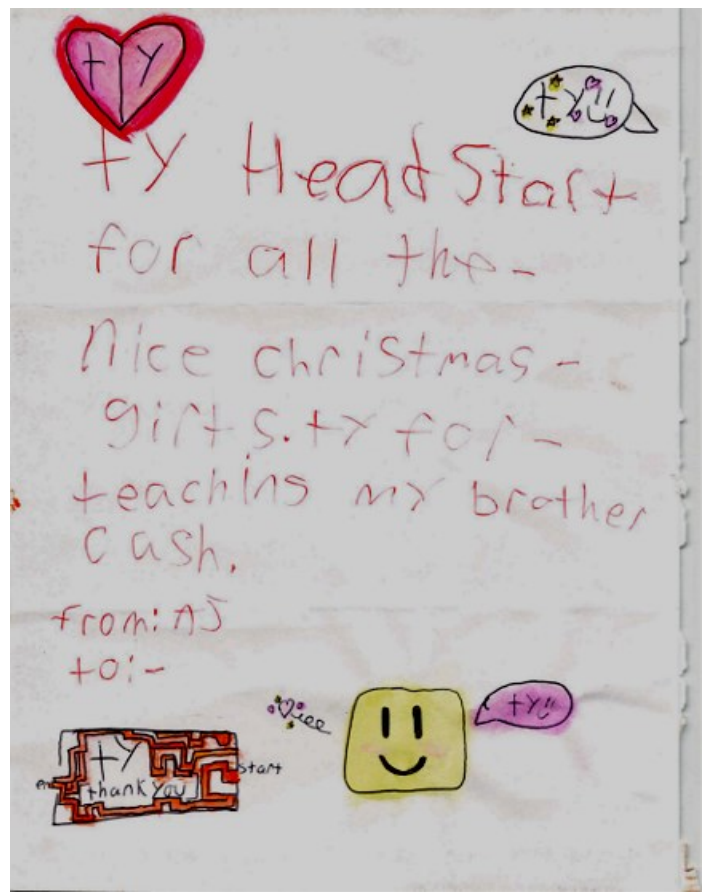 t y
ty
ty Head Start
for all the-
nice christmas-
gifts. ty for-
teaching my brother
Cash.
from: AJ
to:-
ty
ty
thank you
start